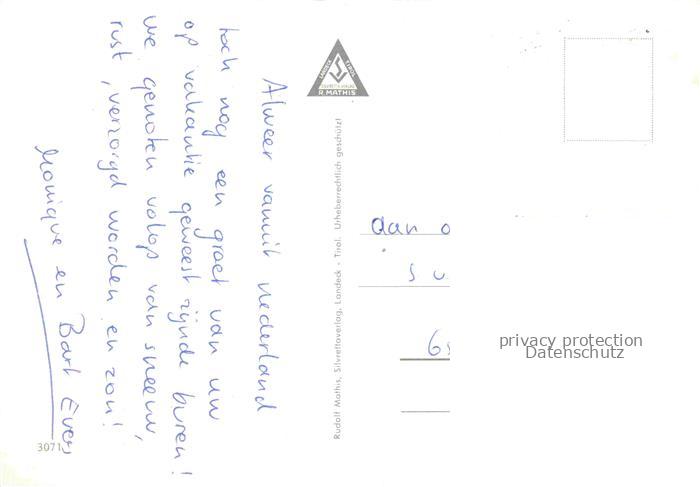 Alweer vanuit nederland
toch nog een groet van uw
op vakantie geweest zijnde buren!
we genoten volop van sneeuw,
rust, verzorgd worden en zon!
Monique en Bart Evers
3071
LANDECK TIROL
R. MATHIS
Rudolf Mathis, Silvrettaverlag, Landeck - Tirol. Urheberrechtlich geschützt
aan
privacy protection
Datenschutz